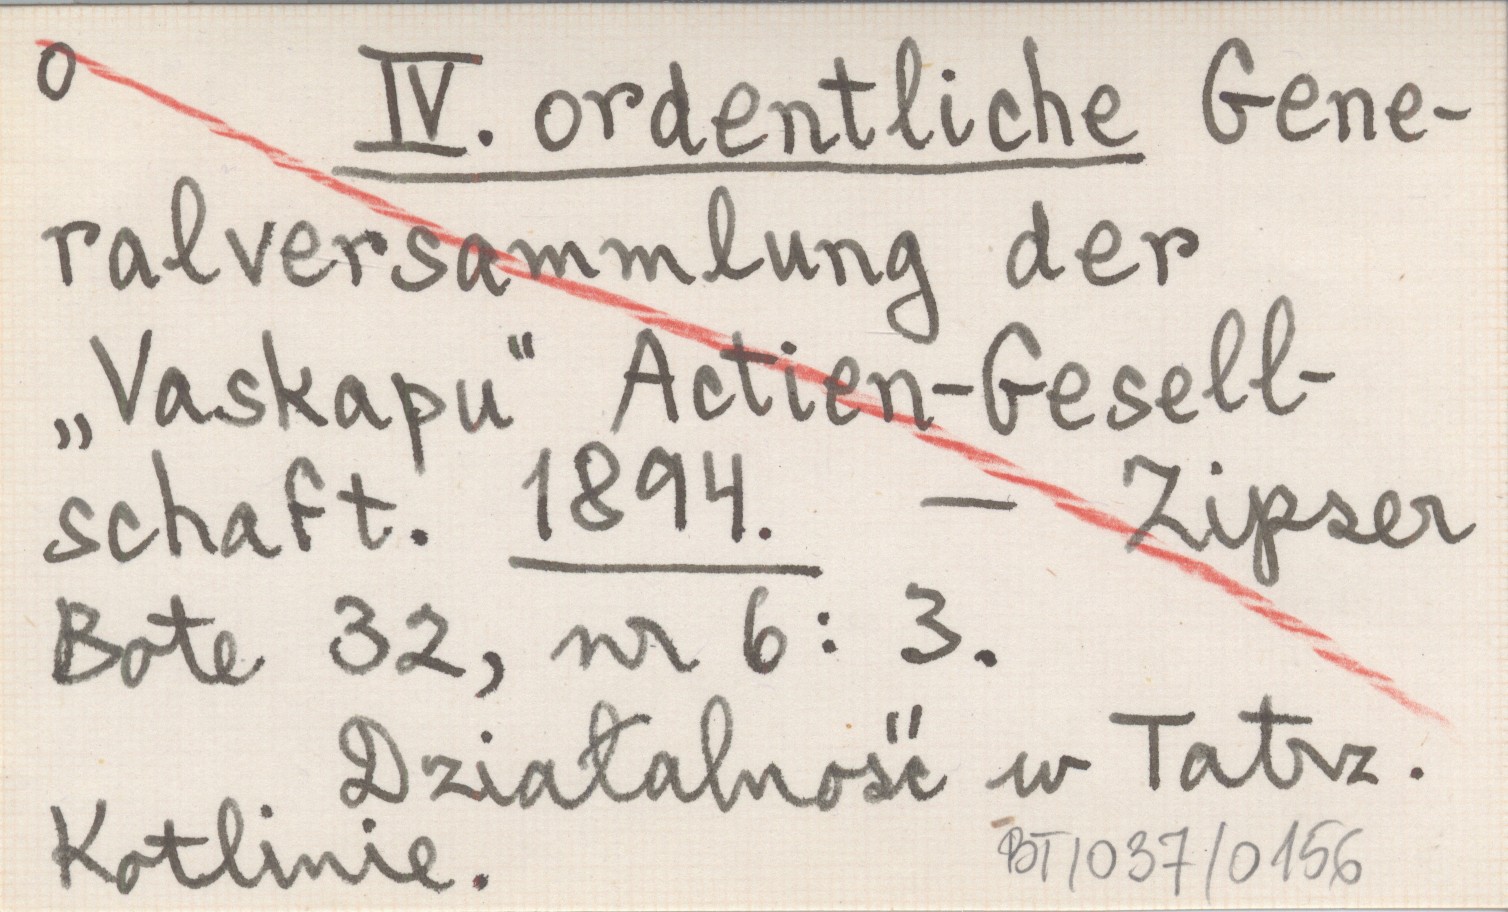 o IV. ordentliche Gene-
ralversammlung der
„Vaskapu“ Actien-Gesell-
schaft. 1894. — Zipser
Bote 32, nr 6: 3.
Działalność w Tatrz.
Kotlinie.
BT/037/0156